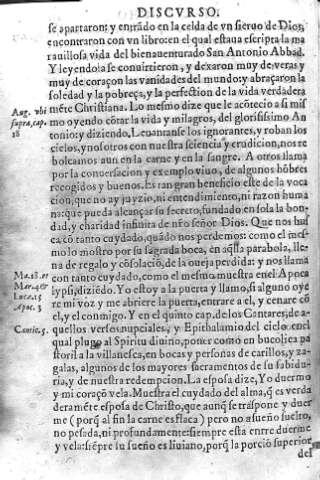 DISCVRSO.
se apartaron: y entrãdo en la celda de vn sieruo de Dios,
encontraron con vn libro: en el qual estaua escripta la ma
rauillosa vida del bienauenturado San Antonio Abbad.
Y leyendola se conuirtieron, y dexaron muy de veras y
muy de coraçon las vanidades del mundo: y abraçaron la
soledad y la pobreça, y la perfection de la vida verdadera
mẽte Christiana. Lo mesmo dize que le acõtecio a si mis
Aug. vbi
supra, cap.
18
mo oyendo cõtar la vida y milagros, del gloriosissimo An
tonio: y diziendo, Leuantanse los ignorantes, y roban los
cielos, y nosotros con nuestra sciencia y erudicion, nos re
bolcamos aun en la carne y en la sangre. A otros llama
por la conuersacion y exemplo viuo, de algunos hõbres
recogidos y buenos. Es tan gran beneficio este de la voca
cion, que no ay juyzio, ni entendimiento, ni razon huma
na: que pueda alcançar su secreto, fundado en sola la bon-
dad, y charidad infinita de nr̃o señor Dios. Que nos bus
ca cõ tanto cuydado, quãdo nos perdemos: como el mes-
mo lo mostro por su sagrada boca, en aq̃lla parabola, lle-
na de regalo y cõsolaciõ, de la oueja perdida: y nos llama
Mar. 4
Luc. 15
Apoc. 3
con tanto cuydado, como el mesmo muestra en el Apoca
lypsi, diziẽdo. Yo estoy a la puerta y llamo, si alguno oye
re mi voz y me abriere la puerta, entrare a el, y cenare cõ
el, y el conmigo. Y en el quinto cap. de los Cantares, de a-
Cantic. 5.
quellos versos nupciales, y Epithalamio del cielo: en el
qual plugo al Spiritu diuino, poner como en bucolica pa
storil a la villanesca, en bocas y personas de carillos, y za-
galas, algunos de los mayores sacramentos de su sabidu-
ria, y de nuestra redempcion. La esposa dize, Yo duermo
y mi coraçõ vela. Muestra el cuydado del alma, q̃ es verda
deramẽte esposa de Christo, que aunq̃ se traspone y duer
me (porq̃ al fin la carne es flaca) pero no a sueño suelto,
no pesada, ni profundamente: siempre esta entre duerme
y vela: siẽpre su sueño es liuiano, porq̃ la porciõ superior
del